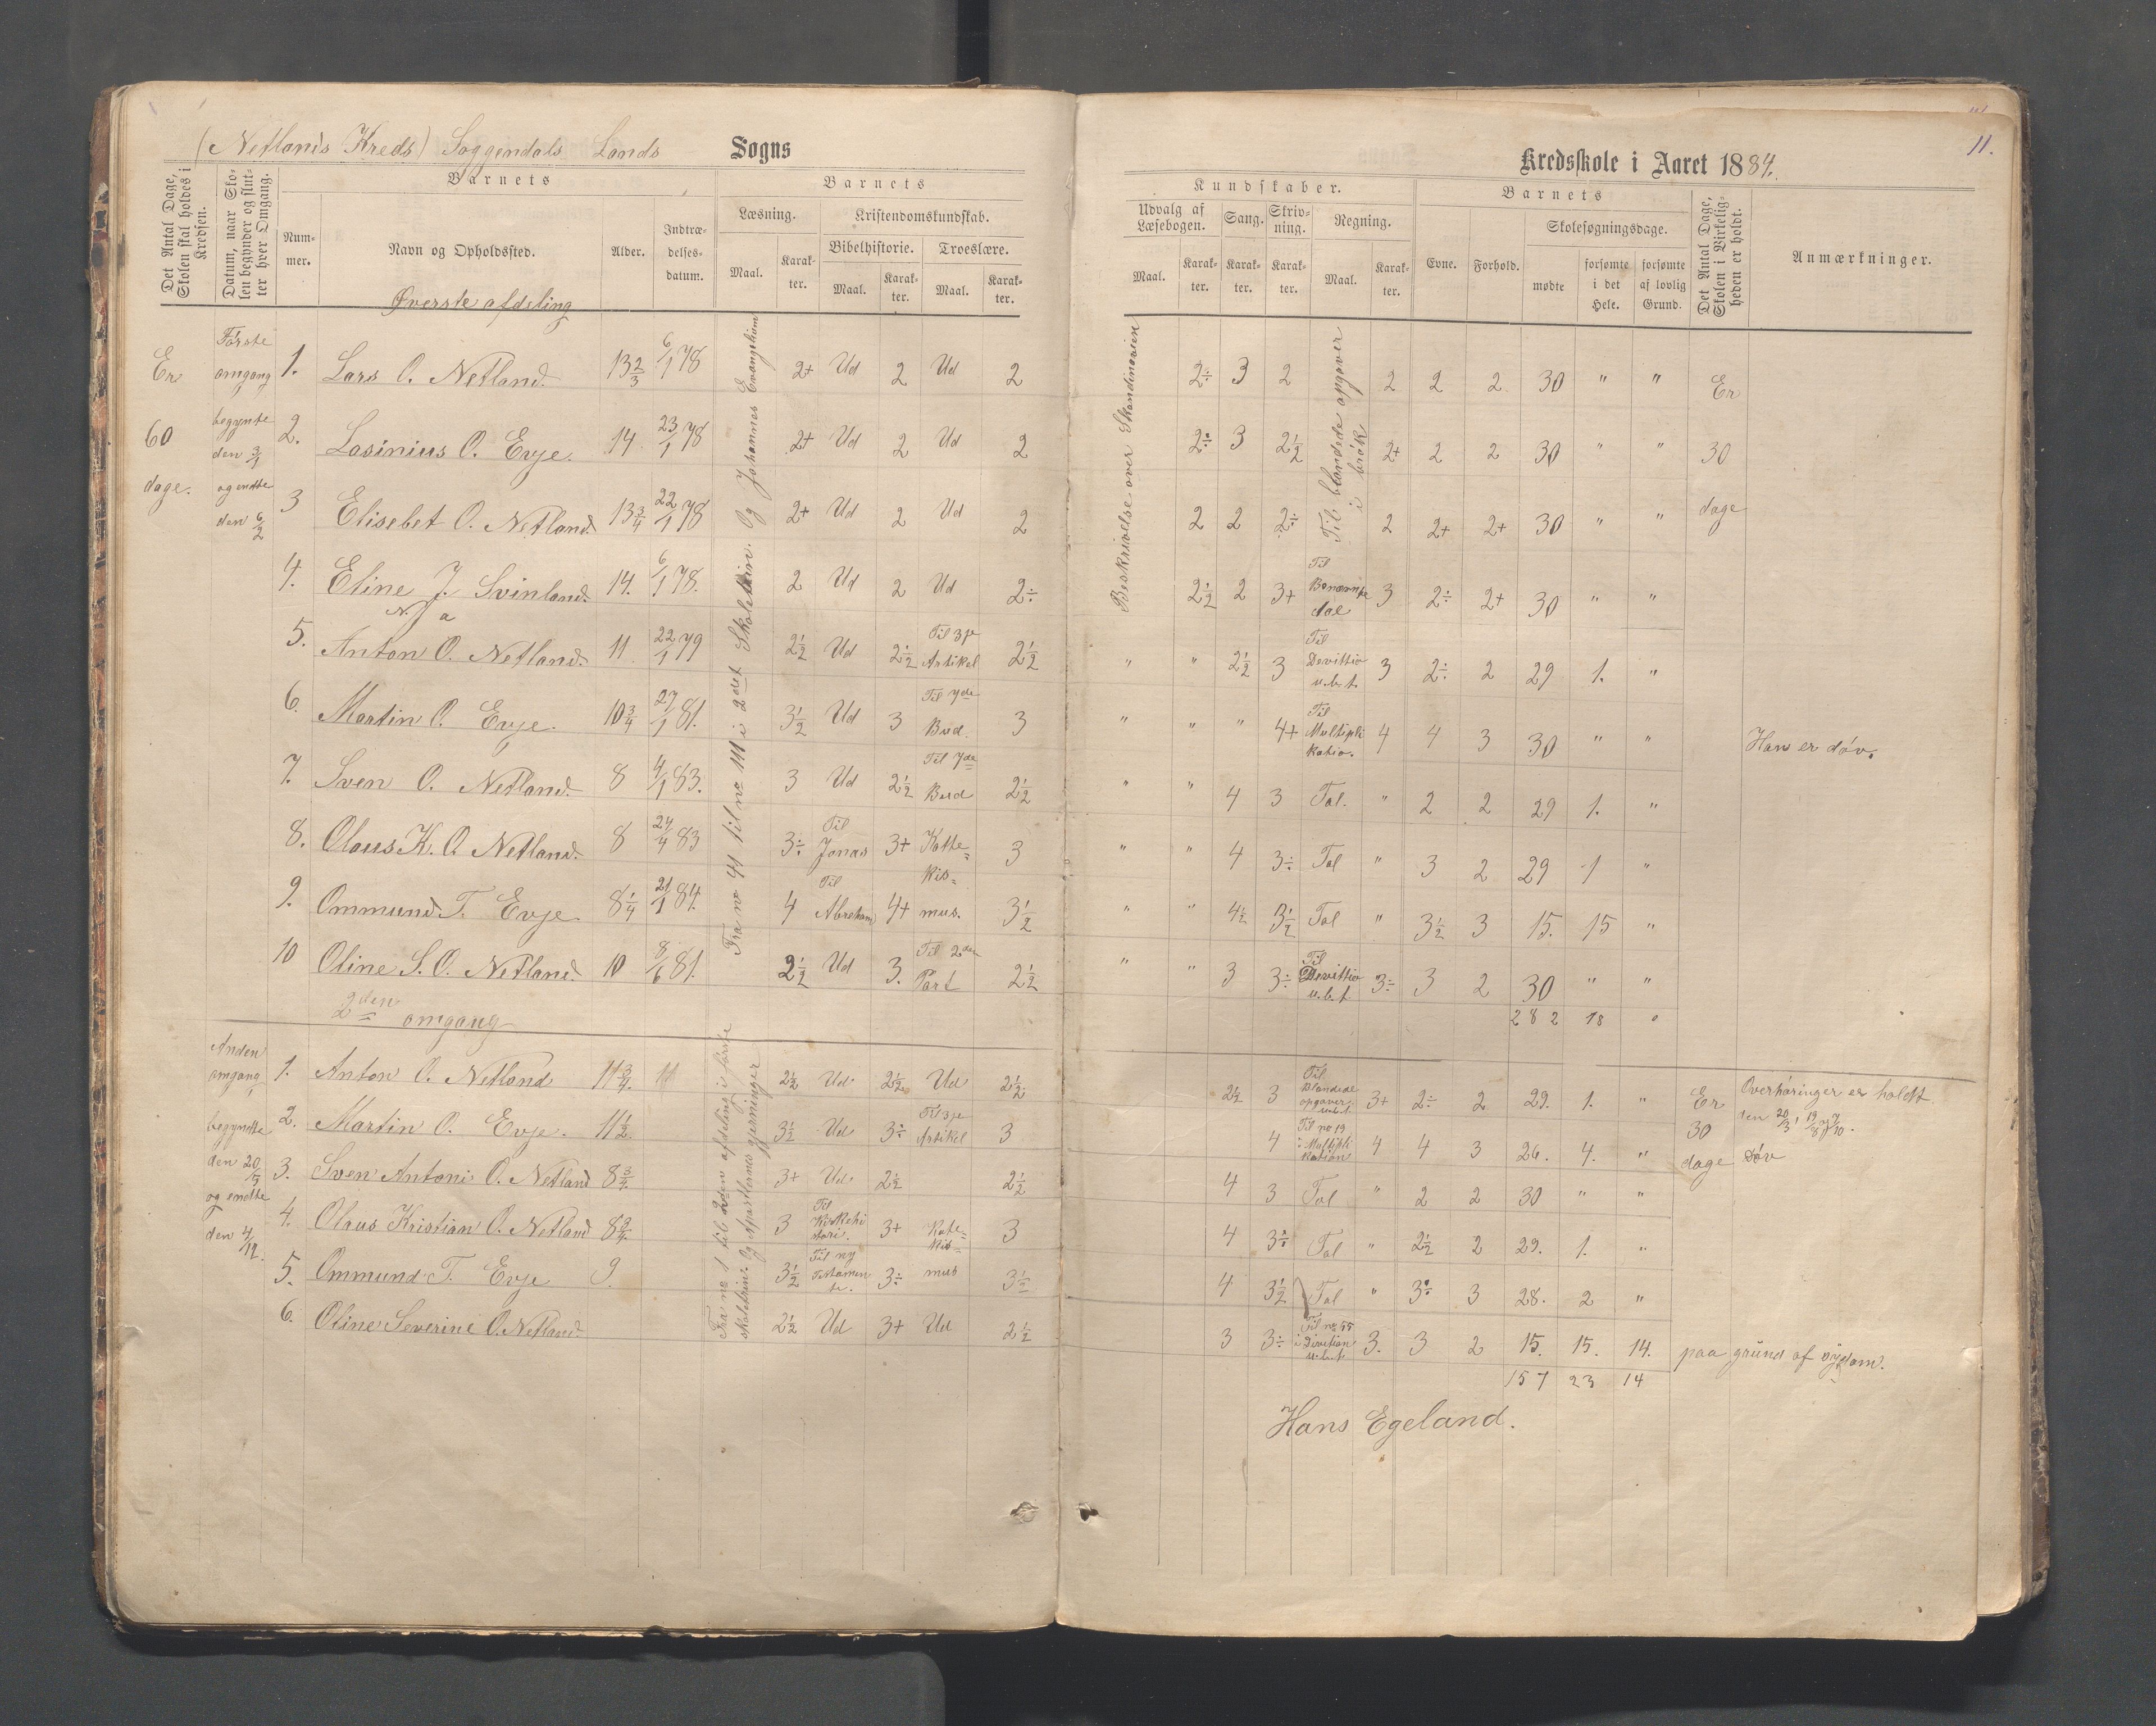 (Netlands Kreds) Soggendals Lands Sogns
Kredsskole i Aaret 1884. 11.
Det Antal Dage, Skolen skal holdes i Kredsen.
Datum, naar Skolen begynder og slutter hver Omgang.
Barnets
Nummer.
Navn og Opholdssted.
Alder.
Indtrædelsesdatum.
Barnets
Læsning.
Maal.
Karakter.
Kristendomskundskab.
Bibelhistorie.
Maal.
Karakter.
Troeslære.
Maal.
Karakter.
Kundskaber.
Udvalg af Læsebogen.
Maal.
Karakter.
Sang.
Karakter.
Skrivning.
Karakter.
Regning.
Maal.
Karakter.
Barnets
Evne.
Forhold.
Skolesøgningsdage.
mødte
forsømte i det Hele.
forsømte af lovlig Grund.
Det Antal Dage, Skolen i Virkeligheden er holdt.
Anmærkninger.
Øverste afdeling
Er 60 dage.
Første omgang begynte den 3/1 og endte den 6/2
Fra no 41 til no 111 i 2det Skoletrin. Og Johannes Evangelium
Beskrivelse over Skandinavien
Til blandede opgaver i brøk
Er 30 dage
1. Lars O. Netland. 13 2/3 6/1 78 2+ Ud 2 Ud 2 2÷ 3 2 2 2 2. 30 " "
2. Lasinius O. Evje. 14. 23/1 78 2+ Ud 2 Ud 2 2÷ 3 2½ 2+ 2 2 30 " "
3 Elisebet O. Netland. 13¾ 22/1 78 2+ Ud 2 Ud 2 2 2 2÷ 2 2+ 2+ 30 " "
4. Eline J. Svinland. 14. 6/1 78. 2 Ud 2 Ud 2÷ 2½ 2 3+ Til Benævnte tal 3 2÷ 2+ 30 " "
5. Anton O. Netland. 11 22/1 79 2½ Ud 2½ Til 3je Artikel 2½ " " 2½ 3 Til Devittio u.b.t. 3 2÷ 2 29 1. "
6. Martin O. Evje. 10¾ 27/1 81. 3½ Ud 3 Til 7de Bud. 3 " " " 4+ Til Multiplikatio. 4 4 3 30 " " Han er døv.
7. Sven O. Netland. 8 4/1 83. 3 Ud 2½ Til 7de Bud 2½ " " 4 3 Tal. " 2 2 29 1. "
8. Olaus K. O. Netland. 8 24/4 83 3÷ Til Jonas 3+ Katte= 3 " " 4 3÷ Tal " 3 2 29 1 "
kis=
9. Ommund T. Evje. 8¼ 21/1 84. 4 Til Abraham 4+ mus. 3½ " " 4½ 3½ Tal " 3½ 3 15. 15 "
10 Oline S. O. Netland. 10 8/6 81. 2½ Ud 3. Til 2den Part 2½ " " 3 3÷ Til Devittio u.b.t. 3÷ 3 2 30 " "
282 18 "
2den omgang
Anden omgang begyndte den 20/5 og endte den 4/12.
Fra no 1 til 2den afdeling i første skoletrin. Og Apostlernes gjerninger
Er 30 dage
1. Anton O. Netland 11¾. 11 2½ Ud 2½ Ud 2½ 2½ 3 Til Blandede opgaver u.b.t. 3+ 2÷ 2 29. 1. " Overhøringer er holdt
den 20/3, 19/8 og 7/10.
2. Martin O. Evje. 11½. 3½ Ud 3÷ Til 3je Artikel 3 4 Til no 19 i Multiplikation 4 4 3 26. 4. " Døv
3. Sven Antoni O. Netland 8¾. 3+ Ud 2½ 2½ 4 3 Tal " 2 2 30 " "
4. Olaus Kristian O. Netland 8¾. 3 Til Kirkehistori. 3+ Kate= 3 4 3÷ Tal " 2½ 2 29. 1. "
kis=
5. Ommund T. Evje 9. 3½ Til ny Testamente. 3÷ mus 3½ 4 3½ Tal " 3÷ 3 28. 2 "
6. Oline Severine O. Netland. 2½ Ud 3+ Ud 2½ 3 3÷ Til no 55 i Divition u.b.t. 3. 3 2 15. 15. 14. paa grund af sygdom.
157 23 14
Hans Egeland.